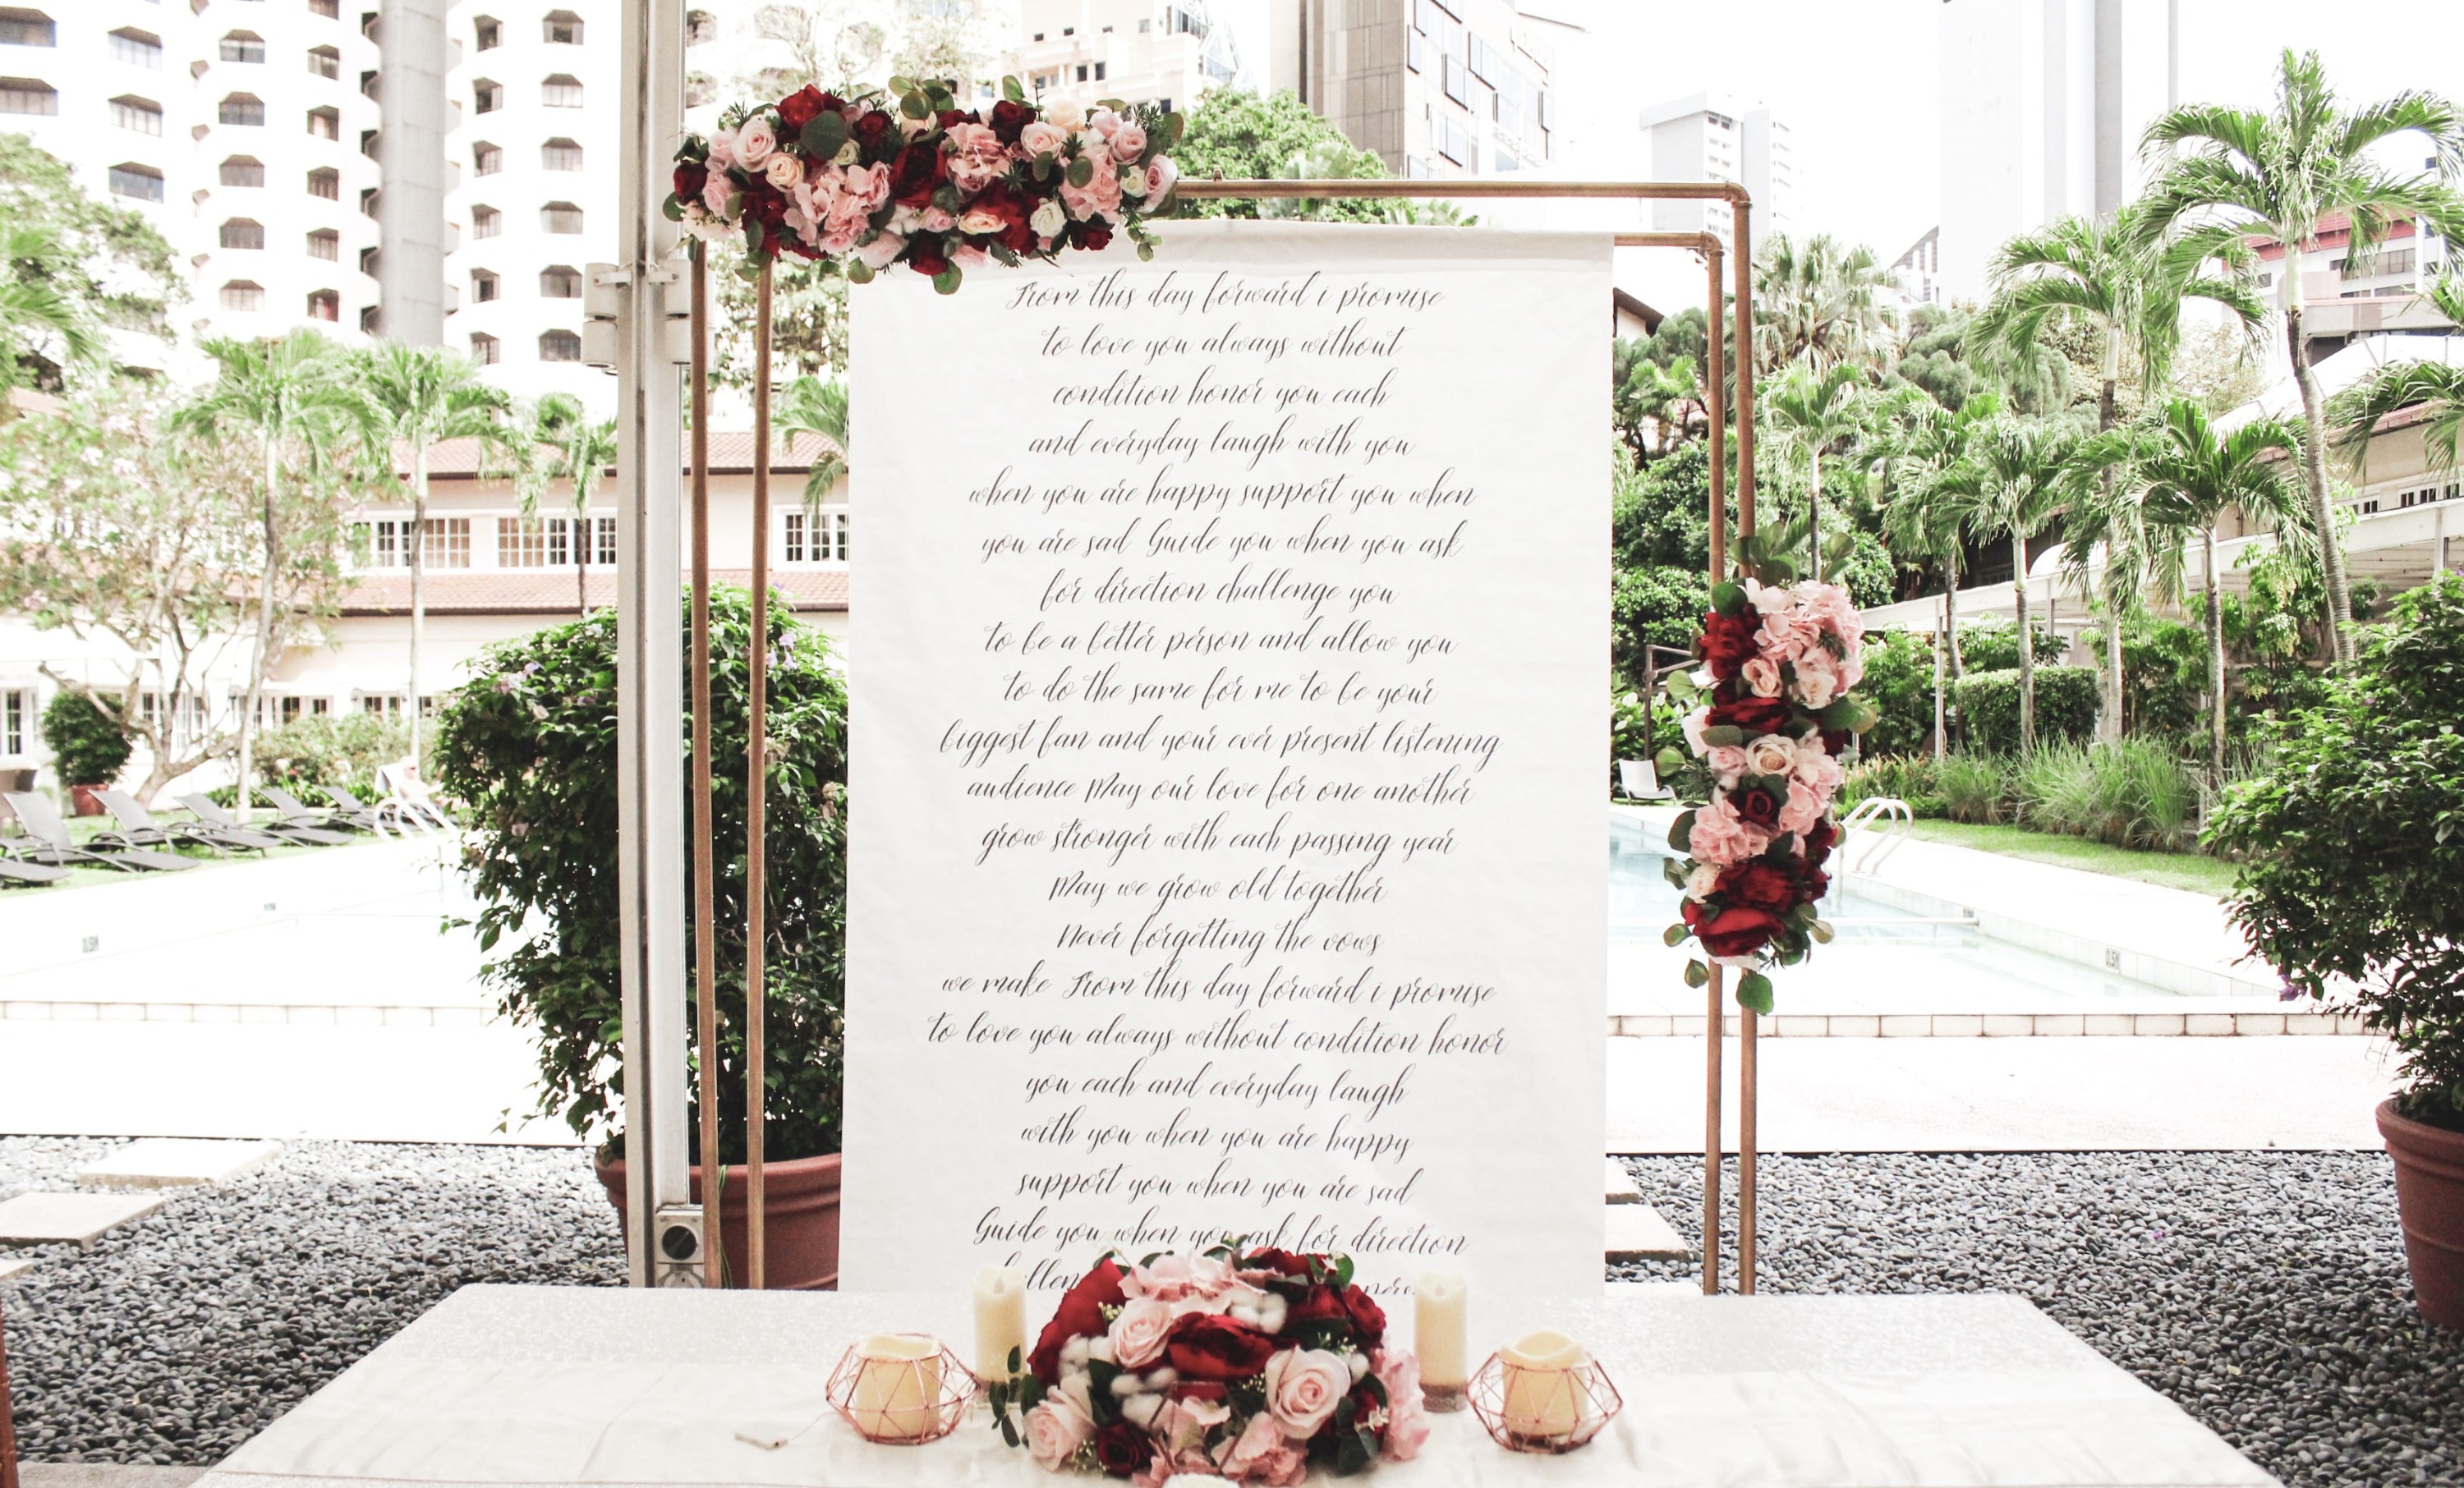 From this day forward i promise
to love you always without
condition honor you each
and everyday laugh with you
when you are happy support you when
you are sad Guide you when you ask
for direction challenge you
to be a better person and allow you
to do the same for me to be your
biggest fan and your ever present listening
audience May our love for one another
grow stronger with each passing year
May we grow old together
Never forgetting the vows
we make From this day forward i promise
to love you always without condition honor
you each and everyday laugh
with you when you are happy
support you when you are sad
Guide you when you ask for direction
0.5M
0.5M